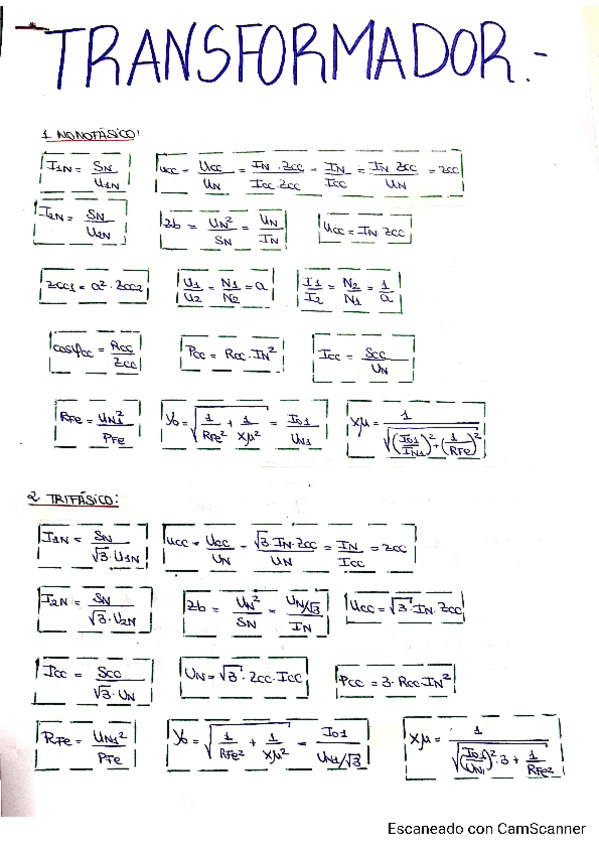 TRANSFORMADOR.-
1. MONOFÁSICO:
I1N = SN / U1N
ucc = Ucc / UN = IN · Zcc / Icc · Zcc = IN / Icc = IN Zcc / UN = zcc
I2N = SN / U2N
Zb = UN² / SN = UN / IN
Ucc = IN · Zcc
Zcc1 = a² · Zcc2
U1 / U2 = N1 / N2 = a
I1 / I2 = N2 / N1 = 1 / a
cosφcc = Rcc / Zcc
Pcc = Rcc · IN²
Icc = Scc / UN
RFe = UN1² / PFe
Yo = √(1 / RFe² + 1 / Xμ²) = I01 / UN1
Xμ = 1 / √((I01 / IN1)² - (1 / RFe)²)
2. TRIFÁSICO:
I1N = SN / √3 · U1N
ucc = Ucc / UN = √3 · IN · Zcc / UN = IN / Icc = zcc
I2N = SN / √3 · U2N
Zb = UN² / SN = UN/√3 / IN
Ucc = √3 · IN · Zcc
Icc = Scc / √3 · UN
UN = √3 · Zcc · Icc
Pcc = 3 · Rcc · IN²
RFe = UN1² / PFe
Yo = √(1 / RFe² + 1 / Xμ²) = I01 / UN1/√3
Xμ = 1 / √((I01 / UN1)² · 3 + 1 / RFe²)
Escaneado con CamScanner